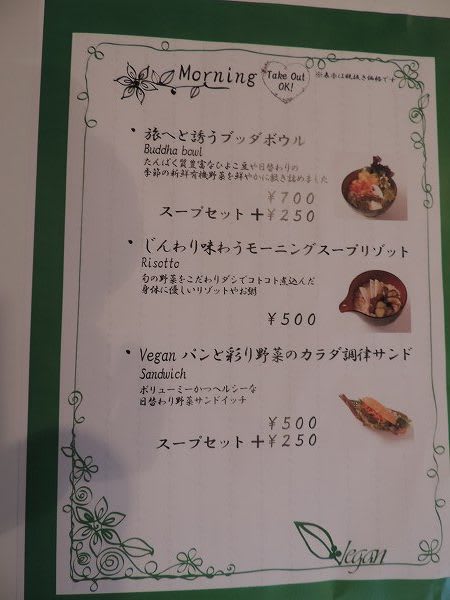 Morning
Take Out
OK!
※表示は税抜き価格です
・旅へと誘うブッダボウル
Buddha bowl
たんぱく質豊富なひよこ豆や日替わりの
季節の新鮮有機野菜を鮮やかに敷き詰めました
￥700
スープセット＋￥250
・じんわり味わうモーニングスープリゾット
Risotto
旬の野菜をこだわりダシでコトコト煮込んだ
身体に優しいリゾットやお粥
￥500
・Vegan パンと彩り野菜のカラダ調律サンド
Sandwich
ボリューミーかつヘルシーな
日替わり野菜サンドイッチ
￥500
スープセット＋￥250
Vegan